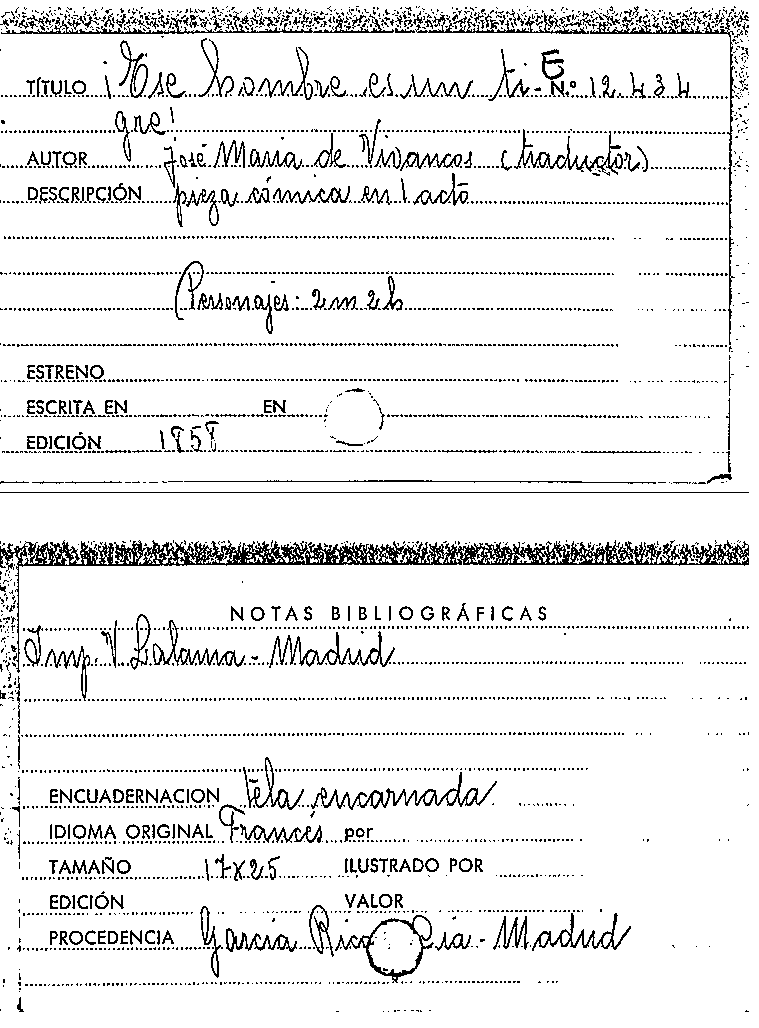 TÍTULO ¡Ese hombre es un ti- E N.º 12.434
gre!
AUTOR José Maria de Vivancos (traductor)
DESCRIPCIÓN pieza cómica en 1 acto
Personajes: 2 m 2 h
ESTRENO
ESCRITA EN EN
EDICIÓN 1858
NOTAS BIBLIOGRÁFICAS
Imp. V. Lalama - Madrid
ENCUADERNACION tela encarnada
IDIOMA ORIGINAL Francés por
TAMAÑO 17x25 ILUSTRADO POR
EDICIÓN VALOR
PROCEDENCIA García Rico Cía - Madrid